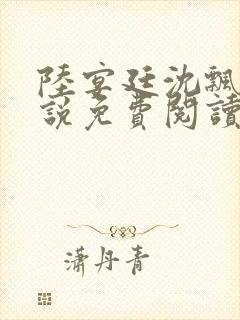 陸宴廷沈飄
說免費閱讀
瀟丹青